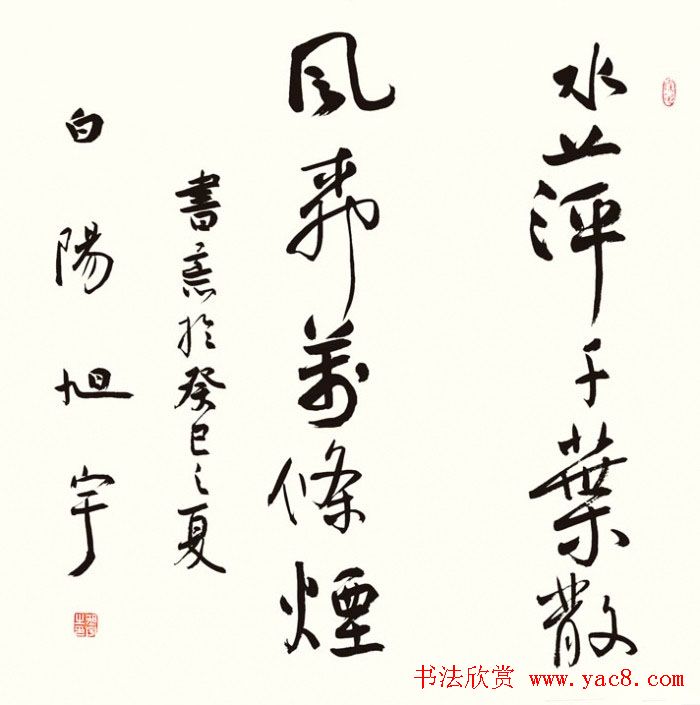 水萍千葉散
風萬條煙
書於癸巳之夏
白陽旭宇
书法欣赏 www.yac8.com